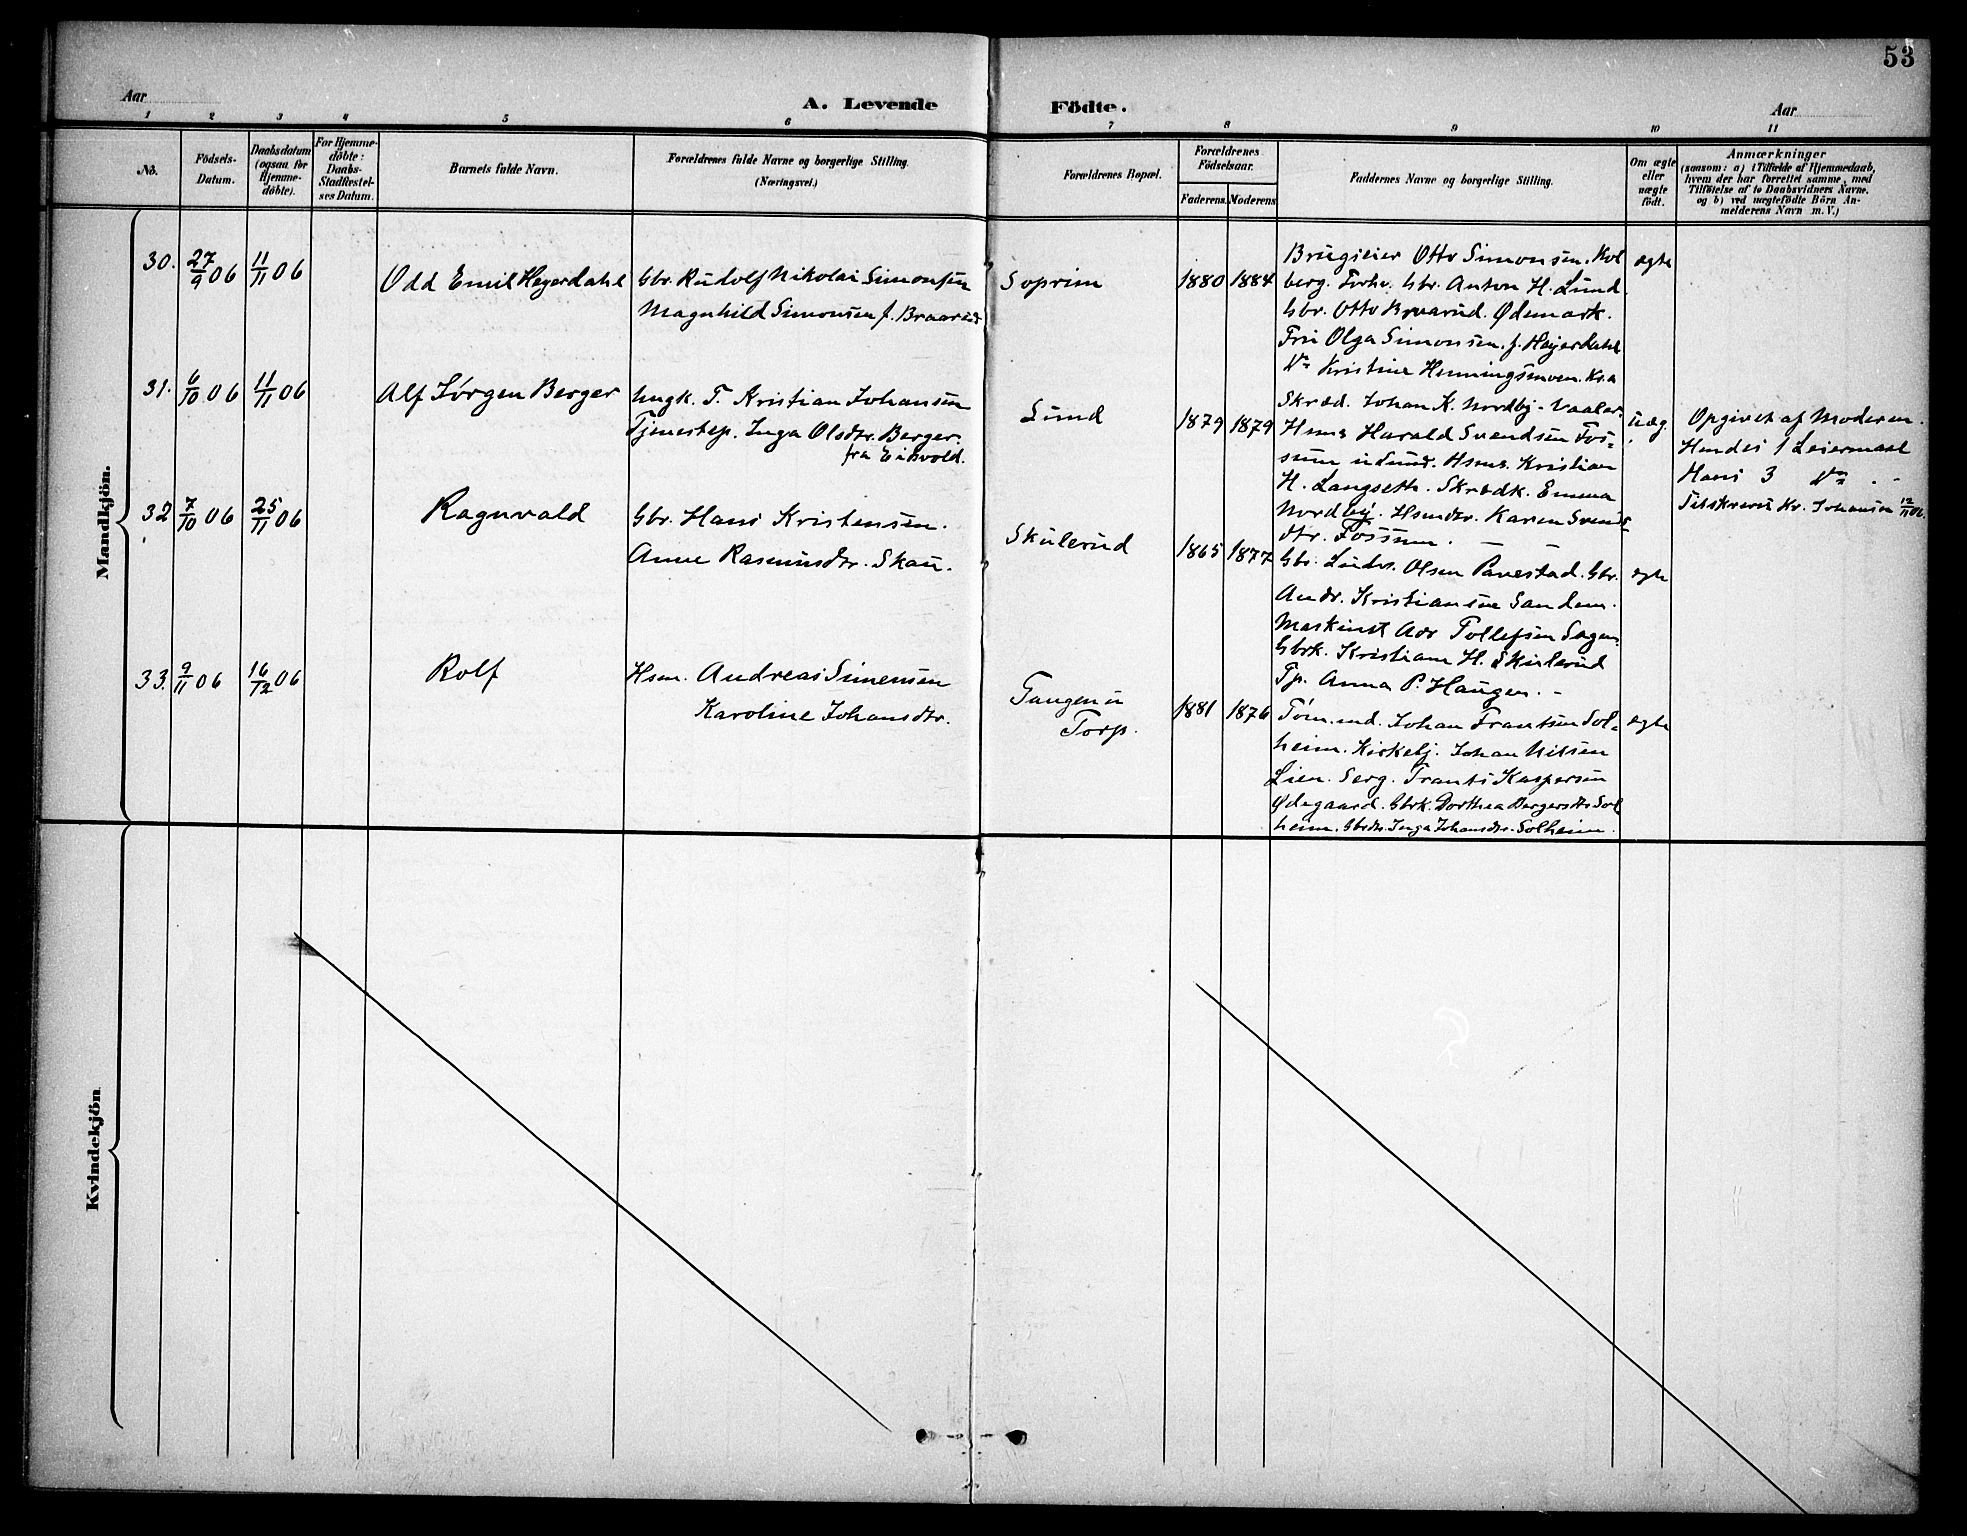 53
Aar
A. Levende Födte.
Aar
1 2 3 4 5 6 7 8 9 10 11
No.
Födsels-
Datum.
Daabsdatum
(ogsaa for
Hjemme-
döbte).
For Hjemme-
döbte:
Daabs-
Stadfæstel-
ses Datum.
Barnets fulde Navn.
Forældrenes fulde Navne og borgerlige Stilling.
(Næringsvei.)
Forældrenes Bopæl.
Forældrenes
Födselsaar.
Faderens. Moderens
Faddernes Navne og borgerlige Stilling.
Om ægte
eller
uægte
födt.
Anmærkninger
(saasom: a) i Tilfælde af Hjemmedaab,
hvem der har forrettet samme, med
Tilföielse af to Daabsvidners Navne.
og b) ved uægtefödte Börn An-
melderens Navn m. V.)
Mandkjön.
30. 27/9 06 11/11 06
Odd Emil Heyerdahl
Gbr. Rudolf Nikolai Simonsen
Magnhild Simonsen f. Braarud
Soprim
1880 1884
Brugseier Otto Simonsen. Kol
berg. Forhv. Gbr. Anton H. Lund.
Gbr. Otto Braarud. Ødemark.
Fru Olga Simonsen. f. Heyerdahl
Kristine Henningsmoen. Kr.a
ægte
31. 6/10 06 11/11 06
Alf Jørgen Berger
Ungk. T. Kristian Johansen
Tjenestep. Inga Olsdtr. Berger.
fra Eidsvold.
Lund
1879 1879
Skræd. Johan K. Nordby - Vaaler.
Hsms Harald Svendsen Fos=
sum u Lund. Hsms. Kristian
H. Langseth. Skrædk. Emma
Nordby. Hsmdtr. Karen Svends
dtr. Fossum.
uæg
Opgivet af Moderen.
Hendes 1 Leiermaal
Hans 3
Tilskrevet Kr. Johansen 12/11 06.
32. 7/10 06 25/11 06
Ragnvald
Gbr. Hans Kristensen.
Anne Rasmusdtr. Skau.
Skulerud
1865 1877
Gbr. Ludv. Olsen Panestad. Gbr.
Andr. Kristiansen Sandem.
Maskinst Adr Tollefsen Sagen.
Gbrk. Kristiane H. Skulerud
Tp. Anna P. Haugen. -
ægte
33. 9/11 06 16/12 06
Rolf
Hsm. Andreas Simensen
Karoline Johansdtr.
Tangen u
Torp.
1881 1876
Tøm.md. Johan Frantsen Sol=
heim. Kirkebj. Johan Nilsen
Lien. Serg. Frants Kaspersen
Ødegaard. Gbrk. Dorthea Bergersdtr Sol
heim. Gbrdtr. Inga Johansdtr. Solheim.
ægte
Kvindekjön